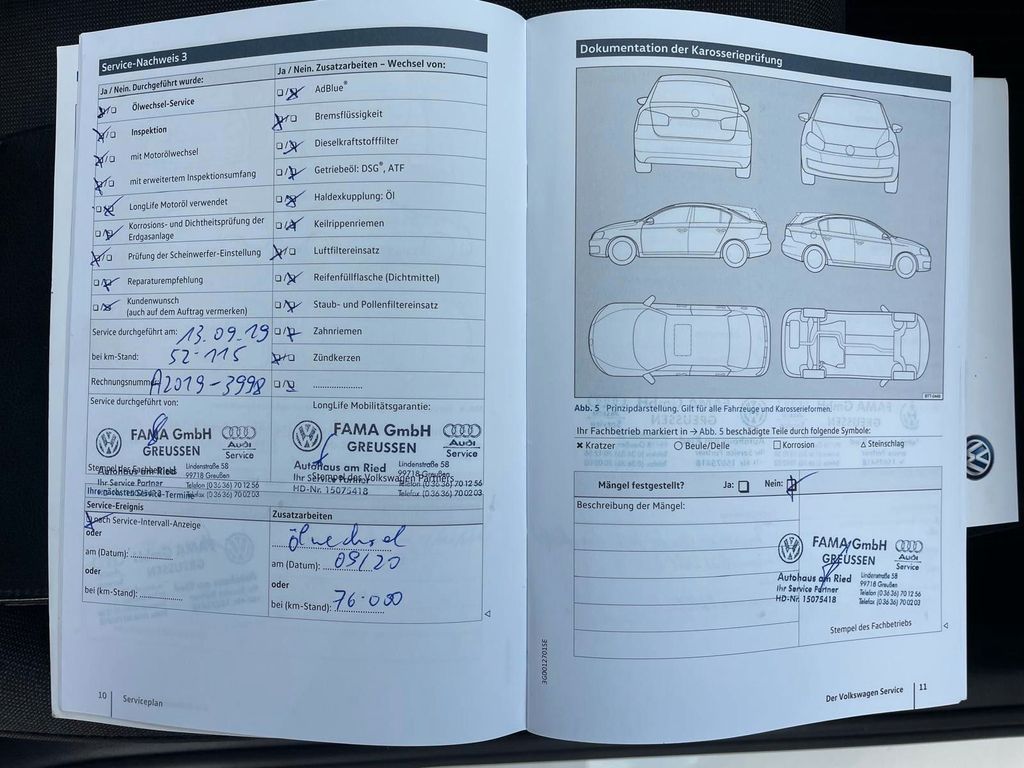 Service-Nachweis 3
Ja / Nein. Durchgeführt wurde:
Ölwechsel-Service
Inspektion
mit Motorölwechsel
mit erweitertem Inspektionsumfang
LongLife Motoröl verwendet
Korrosions- und Dichtheitsprüfung der
Erdgasanlage
Prüfung der Scheinwerfer-Einstellung
Reparaturempfehlung
Kundenwunsch
(auch auf dem Auftrag vermerken)
Service durchgeführt am: 13.09.19
bei km-Stand: 52.115
Rechnungsnumm A2019-3998
Service durchgeführt von:
FAMA GmbH
GREUSSEN
Audi
Service
Autohaus am Ried
Ihr Service Partner
Lindenstraße 58
99718 Greußen
Telefon (03636) 701256
Telefax (03636) 700203
Ja / Nein. Zusatzarbeiten – Wechsel von:
AdBlue®
Bremsflüssigkeit
Dieselkraftstofffilter
Getriebeöl: DSG®, ATF
Haldexkupplung: Öl
Keilrippenriemen
Luftfiltereinsatz
Reifenfüllflasche (Dichtmittel)
Staub- und Pollenfiltereinsatz
Zahnriemen
Zündkerzen
LongLife Mobilitätsgarantie:
FAMA GmbH
GREUSSEN
Audi
Service
Autohaus am Ried
Ihr Service Partner
HD-Nr. 15075418
Stempel des Volkswagen Partners
Lindenstraße 58
99718 Greußen
Telefon (03636) 701256
Telefax (03636) 700203
Ihre nächsten Service-Termine
Service-Ereignis
nach Service-Intervall-Anzeige
oder
am (Datum):
oder
bei (km-Stand):
Zusatzarbeiten
Ölwechsel
am (Datum): 09/20
oder
bei (km-Stand): 76.000
10 Serviceplan
Dokumentation der Karosserieprüfung
BTT-0480
Abb. 5 Prinzipdarstellung. Gilt für alle Fahrzeuge und Karosserieformen.
Ihr Fachbetrieb markiert in → Abb. 5 beschädigte Teile durch folgende Symbole:
✖ Kratzer ○ Beule/Delle □ Korrosion △ Steinschlag
Mängel festgestellt? Ja: Nein:
Beschreibung der Mängel:
FAMA GmbH
GREUSSEN
Audi
Service
Autohaus am Ried
Ihr Service Partner
HD-Nr. 15075418
Lindenstraße 58
99718 Greußen
Telefon (03636) 701256
Telefax (03636) 700203
Stempel des Fachbetriebs
3G0012701SE
Der Volkswagen Service 11